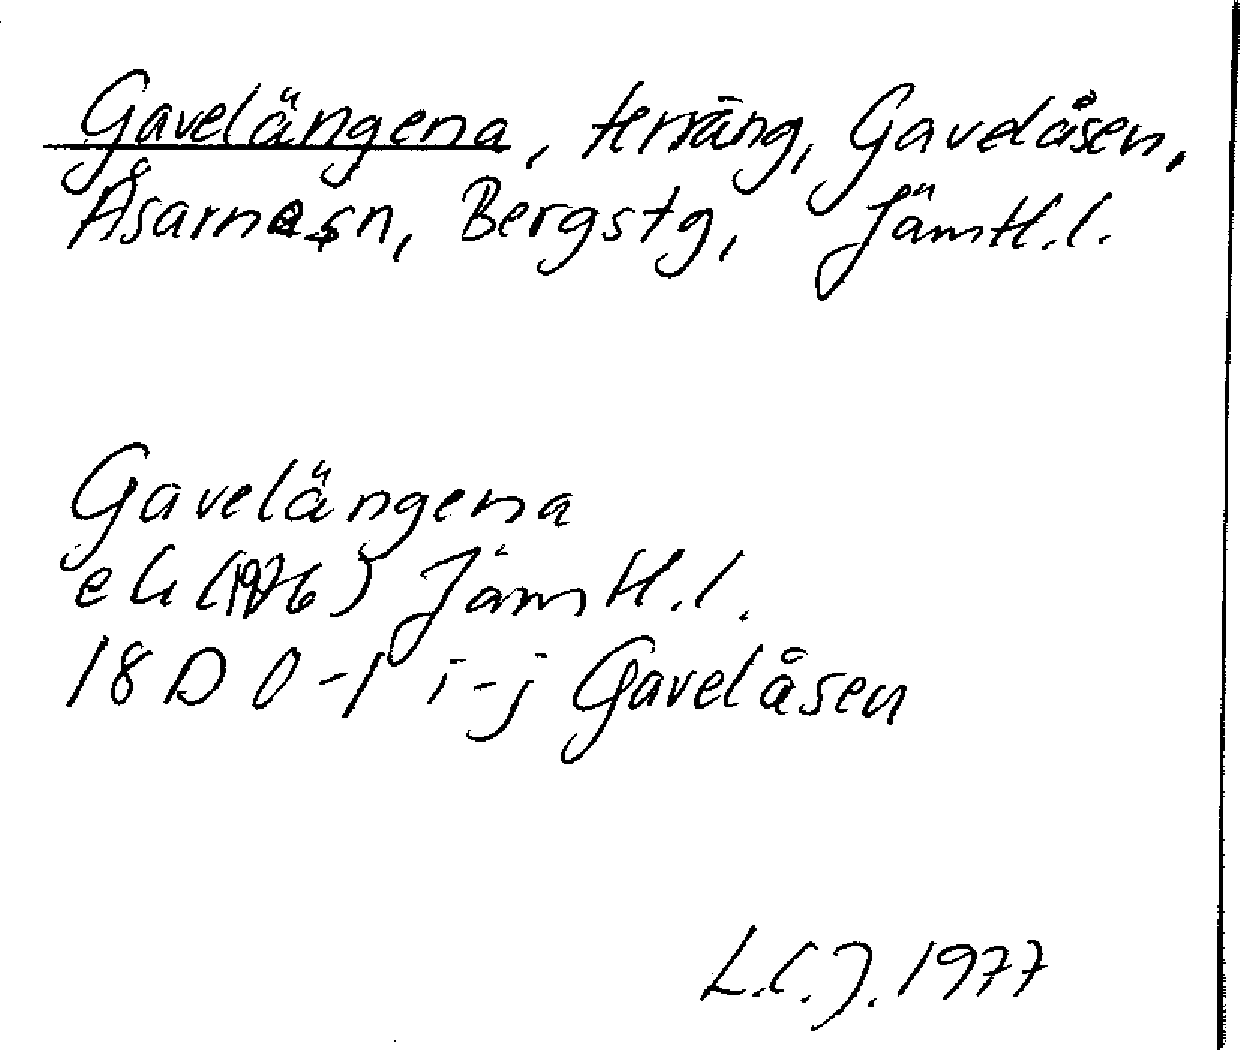 Gavelängena, terräng, Gavelåsen,
Åsarne sn, Bergs tg, Jämtl. l.
Gavelängena
ek (1976) Jämtl. l.
18 D 0-1 i-j Gavelåsen
L.C.J. 1977